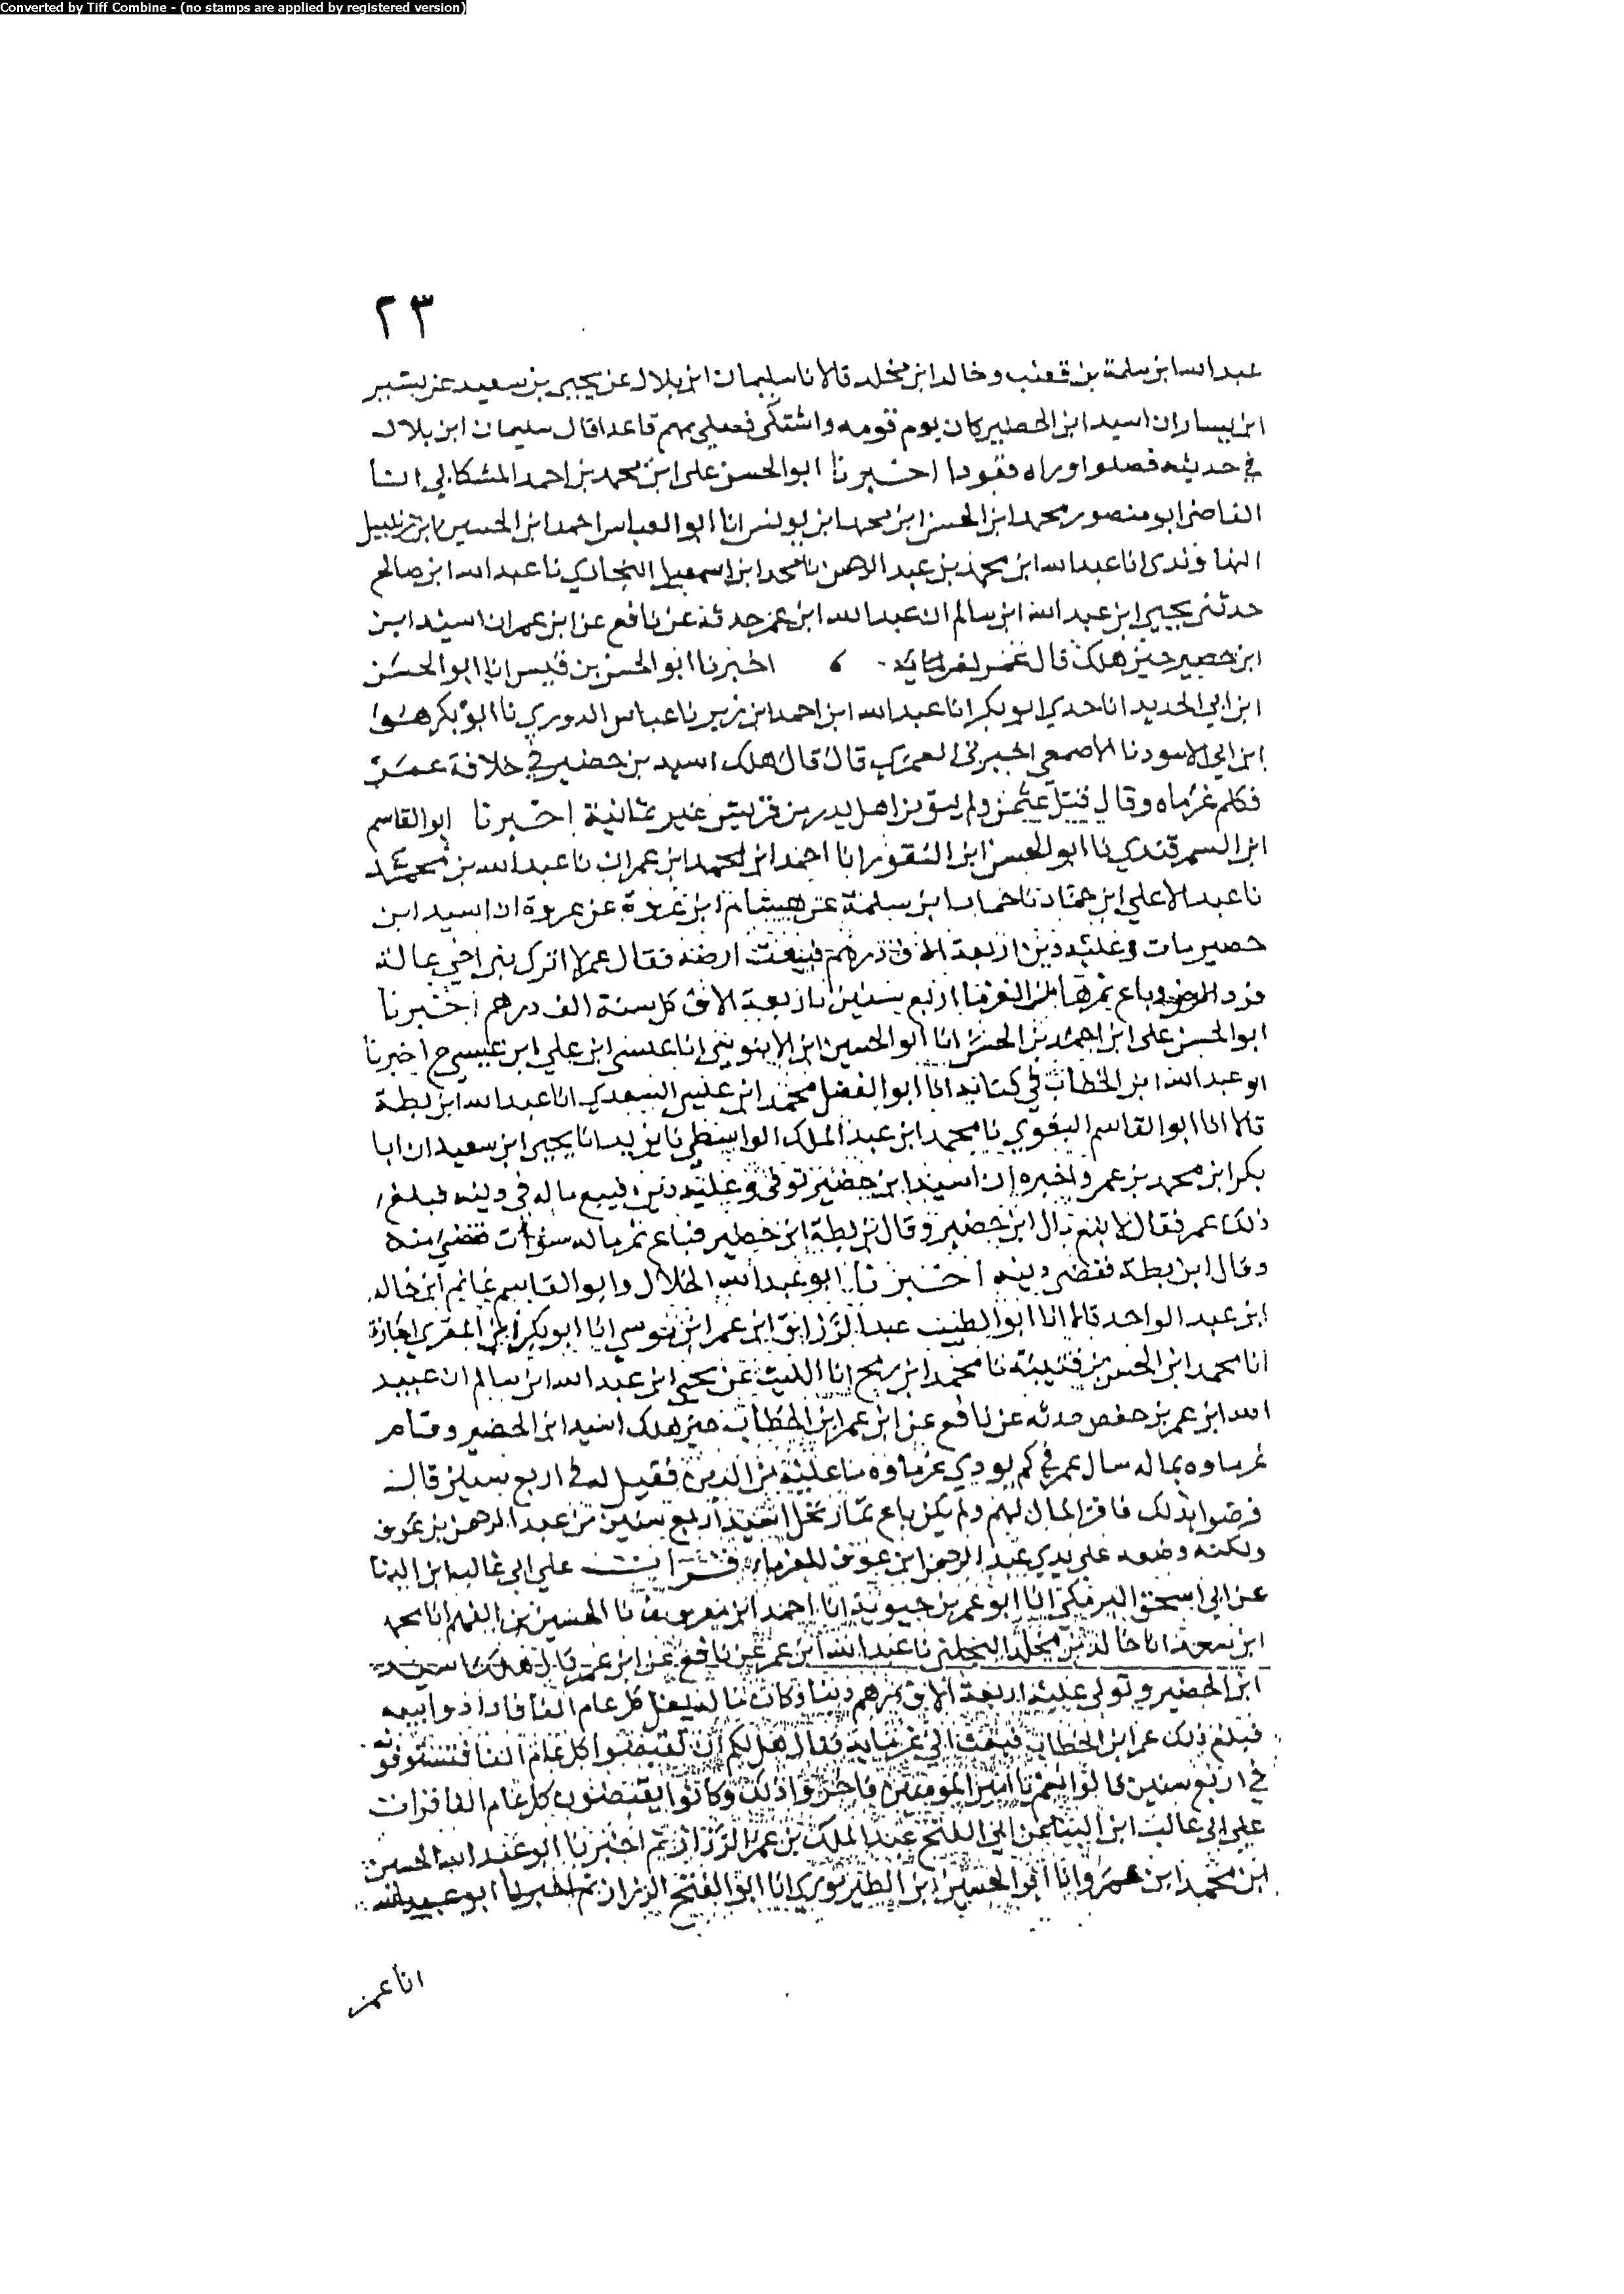 Converted by Tiff Combine - (no stamps are applied by registered version)
٢٣
عبد الله ابن سلمة بن قعنب وخالد ابن مخلد قالا نا سليمان ابن بلال عن يحيى بن سعيد عن بشير
ابن يسار ان اسيد ابن الحضير كان يوم قومه واشتكى فصلى بهم قاعدا قال سليمان ابن بلال
في حديثه فصلوا وراه قعودا اخبرنا ابو الحسن على ابن محمد بن احمد المشكاني انا
القاضى ابو منصور محمد ابن الحسن ابن محمد ابن يونس انا ابو العباس احمد ابن الحسين ابن زنبيل
النهاوندى انا عبد الله ابن محمد بن عبد الرحمن نا محمد ابن اسمعيل البخاري نا عبد الله ابن صالح
حدثنى يحيى ابن عبد الله ابن سالم ان عبد الله ابن عمر حدثه عن نافع عن ابن عمر ان اسيد ابن
ابن حصير حين هلك قال عمر لغرمائه اخبرنا ابو الحسن بن قبيس انا ابو الحسن
ابن ابي الحديد انا جدي ابو بكر انا عبد الله ابن احمد ابن زبر نا عباس الدوري نا ابو بكر هو
ابن ابي الاسود نا الاصمعي اخبرنى العمري قال قال هلك اسيد بن حضير في خلافة عمر
فكلم غرماه وقال قتل عثمن ولم يبق من اهل بدر من قريش غير ثمانية اخبرنا ابو القاسم
ابن السمرقندي نا ابو الحسن ابن النقور انا احمد ابن محمد ابن عمران نا عبد الله بن محمد
نا عبد الاعلي ابن حماد نا حماد ابن سلمة عن هشام ابن عروة عن عروة ان اسيد ابن
حصير مات وعليه دين اربعة الاف درهم فبيعت ارضه فقال عمر لا اترك بنى اخي عالة
فرد الارض وباع ثمرها من الغرما اربع سنين باربعة الاف كل سنة الف درهم اخبرنا
ابو الحسن على ابن احمد بن الحسن انا ابو الحسين ابن الابنوسي انا عيسى ابن علي ابن عيسى ح اخبرنا
ابو عبد الله ابن الخطاب في كتابه انا ابو الفضل محمد ابن عيسى السعدي انا عبد الله ابن بطة
قالا انا ابو القاسم البغوي نا محمد ابن عبد الملك الواسطي نا يزيد انا يحيى ابن سعيد ان ابا
بكر ابن محمد بن عمرو اخبره ان اسيد ابن حضير توفى وعليه دين فبيع ماله في دينه فبلغ
ذلك عمر فقال لابنه قال ابن حضير وقال بن بطة ابن حصير فباع ثمر ماله سنوات فقضى منه
وقال ابن بطة فقضى دينه اخبرنا ابو عبد الله الخلال وابو القاسم غانم ابن خالد
ابن عبد الواحد قالا انا ابو الطيب عبد الرزاق ابن عمر ابن موسى انا ابو بكر ابن المقري اجازة
انا محمد ابن الحسن بن قتيبة نا محمد ابن رمح انا الليث عن يحيى ابن عبد الله ابن سالم ان عبيد
الله ابن عمر بن حفص حدثه عن نافع عن ابن عمر ابن الخطاب حين هلك اسيد ابن الحضير وقام
غرماوه بماله سال عمر في كم يودي غرماوه ما عليه من الدين فقيل له في اربع سنين قال
فرضوا بذلك فاقر المال لهم ولم يكن باع ثمار نخل اسيد اربع سنين من عبد الرحمن بن عوف
ولكنه وضعه على يدي عبد الرحمن ابن عوف للغرماء قرات على ابي غالب ابن البنا
عن ابي اسحق البرمكي انا ابو عمر بن حيوية انا احمد ابن معروف نا الحسين بن الفهم انا محمد
ابن سعد انا خالد بن مخلد البجلي نا عبد الله ابن عمر عن نافع عن ابن عمر قال هلك اسيد
ابن الحضير وتوفي عليه اربعة الاف درهم دينا وكان ماله يغل كل عام الفا فارادوا بيعه
فبلغ ذلك عمر ابن الخطاب فبعث الى غرمايه فقال هل لكم ان تقبضوا كل عام الفا فتستوفوه
في اربع سنين قالوا نعم يا امير المومنين فاخروا ذلك وكانوا يقبضون كل عام الفا قرات
علي ابي غالب ابن البنا عن ابي الفتح عبد الملك بن عمر الرزاز ثم اخبرنا ابو عبد الله الحسين
ابن محمد ابن عمرو انا ابو الحسين ابن الطيوري انا ابو الفتح الرزاز ثم اخبرنا ابو عبد الله
انا عمر